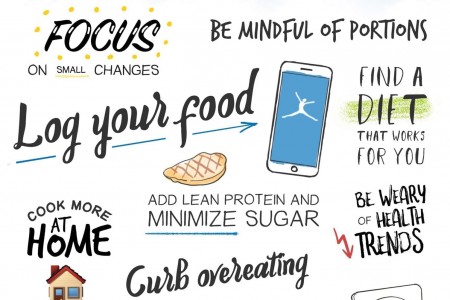 FOCUS
ON SMALL CHANGES
BE MINDFUL OF PORTIONS
Log your food
FIND A
DIET
THAT WORKS
FOR YOU
ADD LEAN PROTEIN AND
MINIMIZE SUGAR
COOK MORE
AT
HOME
BE WEARY
OF HEALTH
TRENDS
Curb overeating